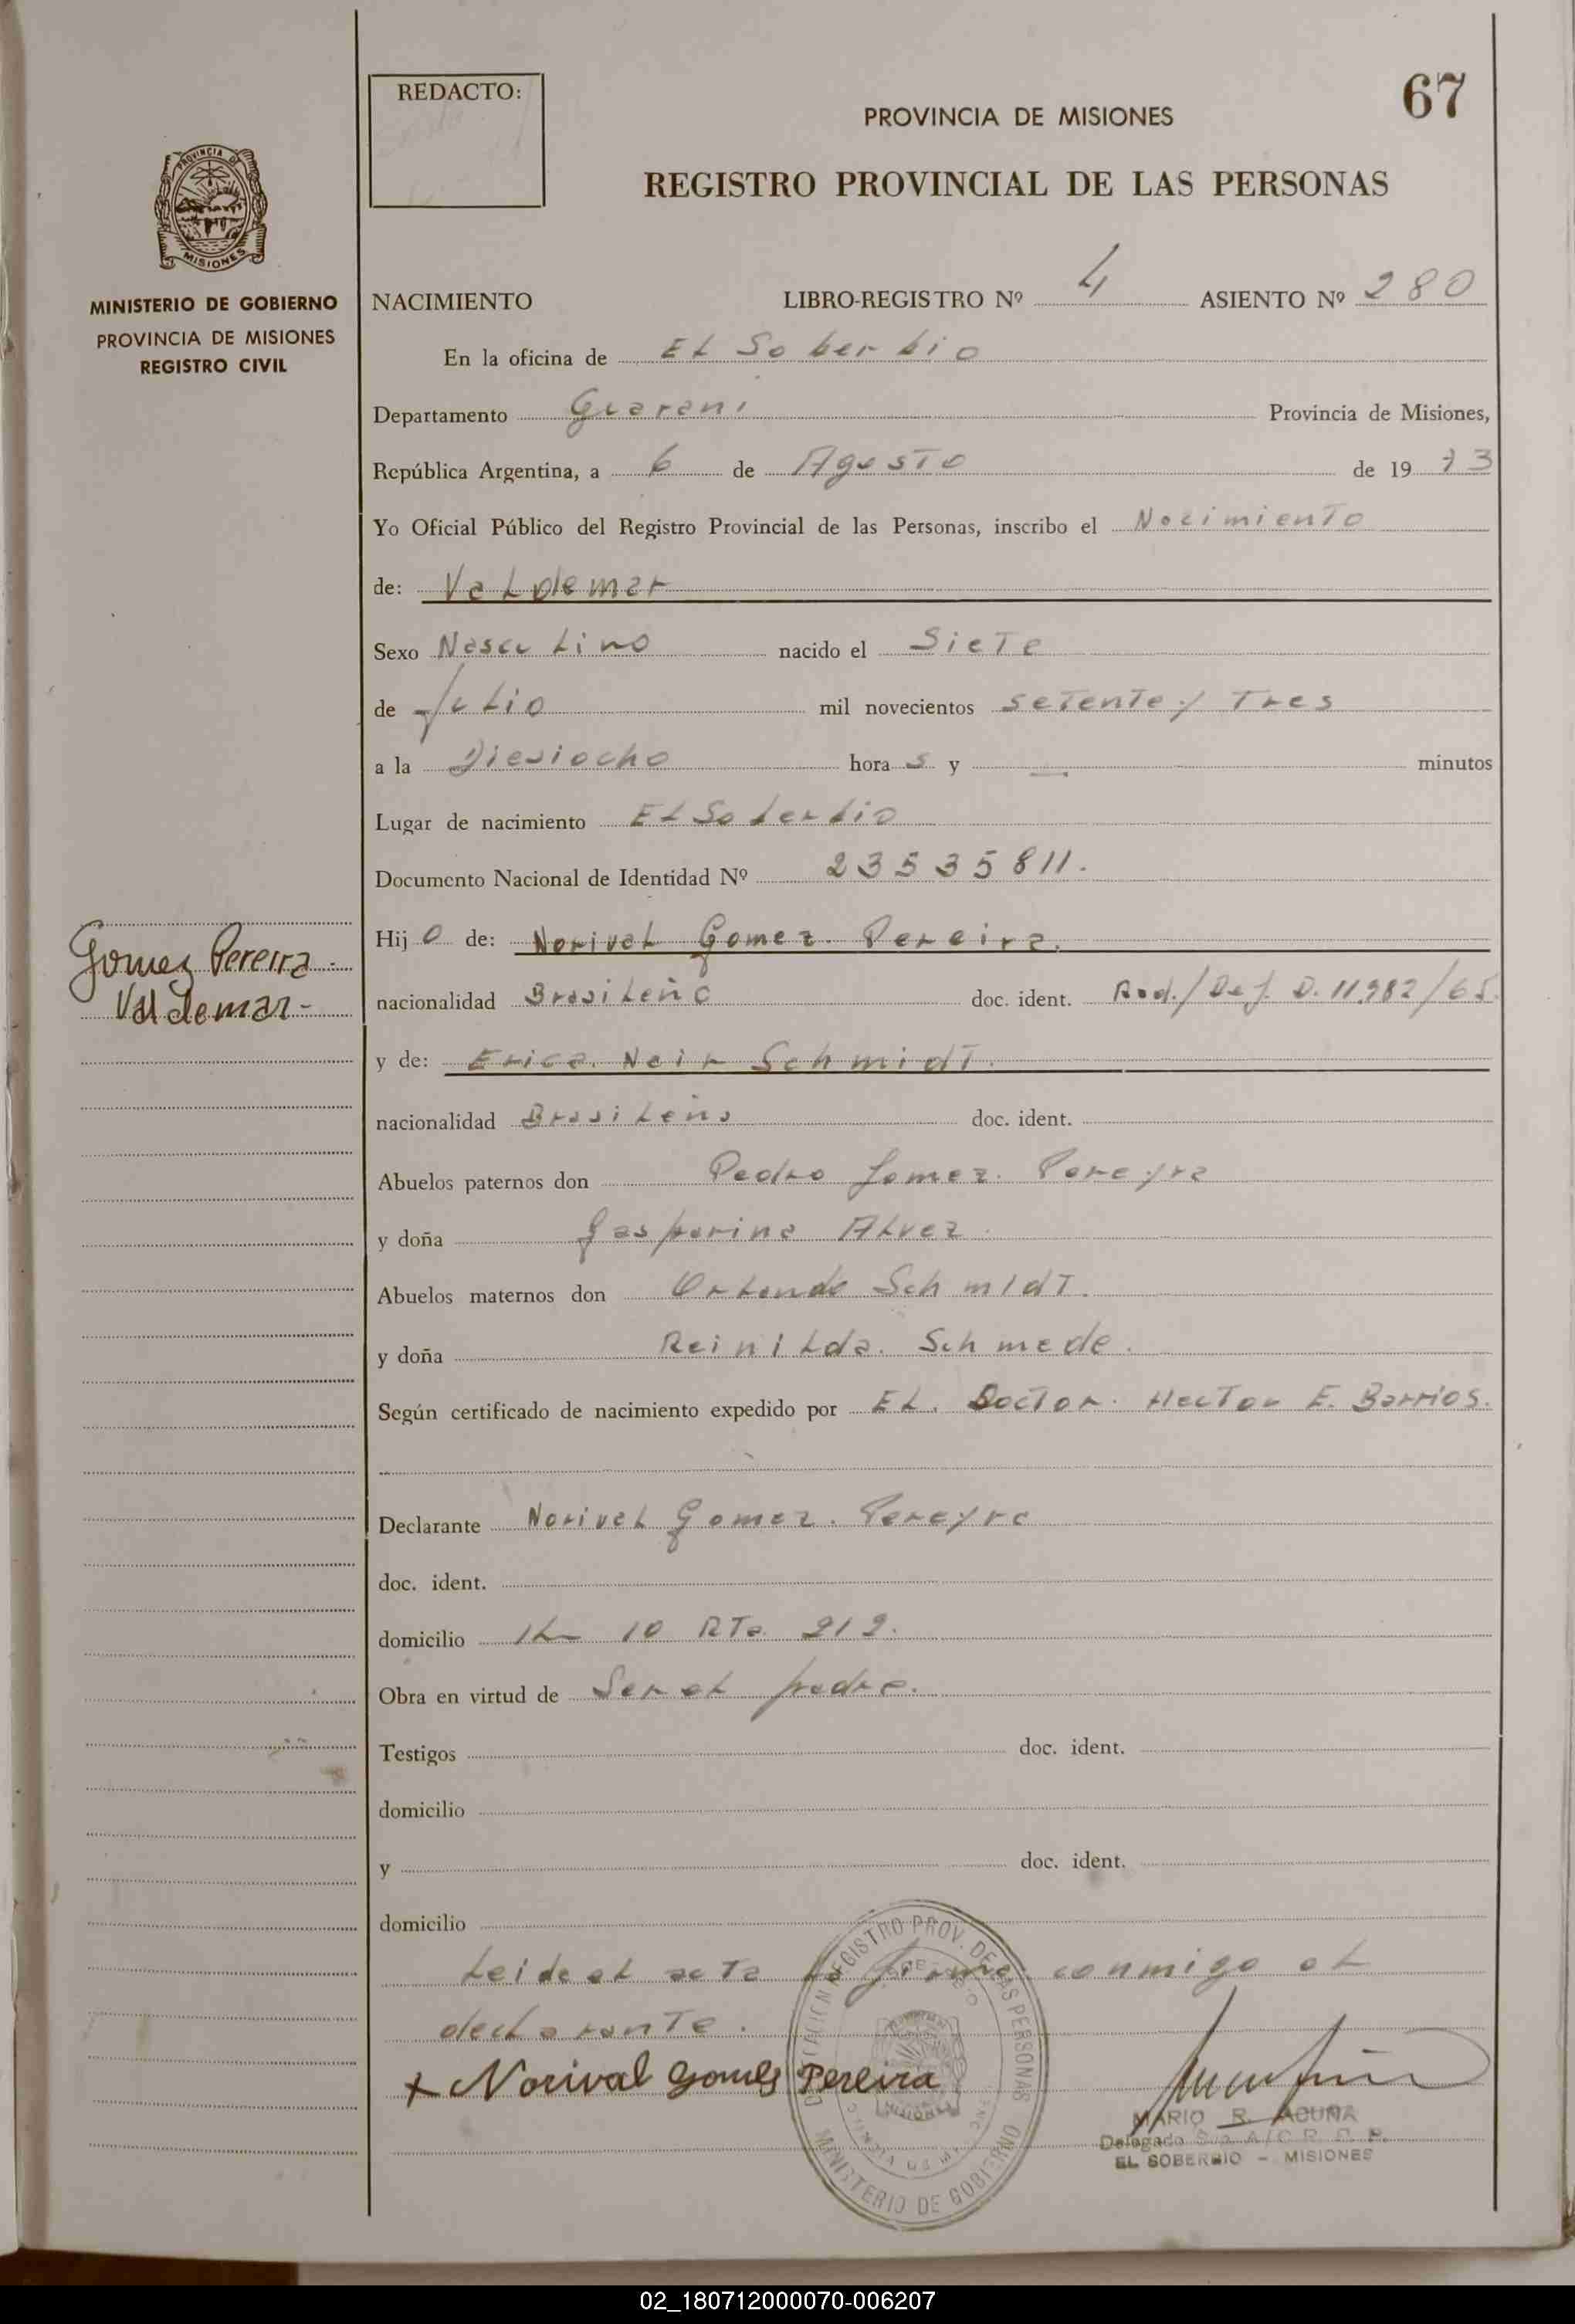 67
REDACTO:
PROVINCIA DE MISIONES
REGISTRO PROVINCIAL DE LAS PERSONAS
PROVINCIA DE
MISIONES
MINISTERIO DE GOBIERNO
PROVINCIA DE MISIONES
REGISTRO CIVIL
NACIMIENTO LIBRO-REGISTRO Nº 4 ASIENTO Nº 280
En la oficina de El Soberbio
Departamento Guarani Provincia de Misiones,
República Argentina, a 6 de Agosto de 19 73
Yo Oficial Público del Registro Provincial de las Personas, inscribo el Nacimiento
de: Valdemar
Sexo Masculino nacido el Siete
de Julio mil novecientos setenta y Tres
a la Diesiocho hora s y — minutos
Lugar de nacimiento El Soberbio
Documento Nacional de Identidad Nº 23535811.
Hij o de: Norival Gomez Pereira.
Gomez Pereira.
Valdemar-
nacionalidad Brasileño doc. ident. Rad./Def. D. 11.982/65.
y de: Erica Neir Schmidt.
nacionalidad Brasileña doc. ident.
Abuelos paternos don Pedro Gomez. Pereyra
y doña Gasparina Alvez.
Abuelos maternos don Orlando Schmidt.
y doña Reinilda. Schmede.
Según certificado de nacimiento expedido por El. Doctor. Hector E. Barrios.
Declarante Norival Gomez. Pereyra
doc. ident.
domicilio Km 10 RTa 212.
Obra en virtud de Ser el padre.
Testigos doc. ident.
domicilio
y doc. ident.
domicilio
Leida el acta la firma conmigo el
declarante.
x Norival Gomes Pereira
REGISTRO PROV. DE LAS PERSONAS
MINISTERIO DE GOBIERNO
MISIONES
MARIO R. ACUÑA
Delegado
EL SOBERBIO - MISIONES
02_180712000070-006207